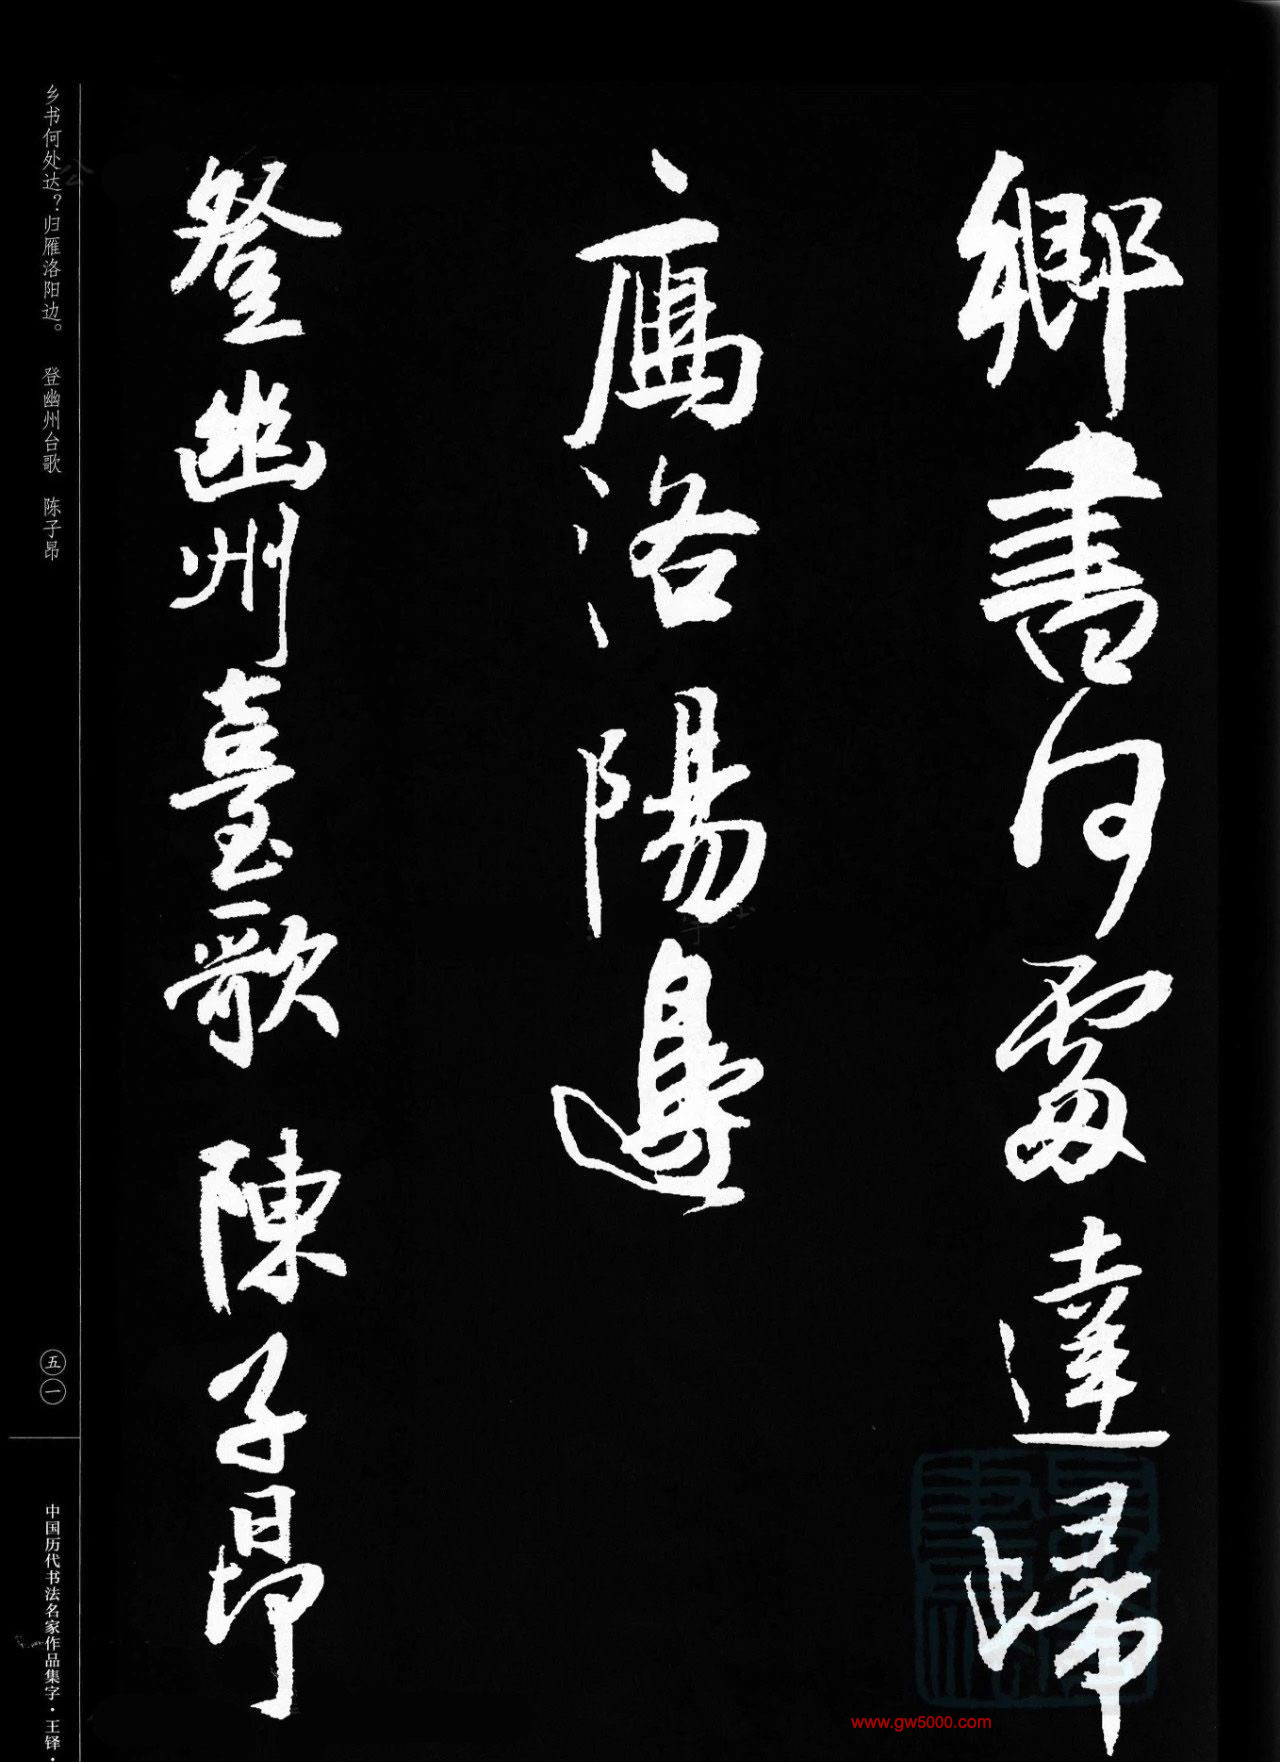 鄉書何處達歸
雁洛陽邊
登幽州臺歌 陳子昂
乡书何处达？归雁洛阳边。 登幽州台歌 陈子昂
五一
中国历代书法名家作品集字·王铎·
www.gw5000.com